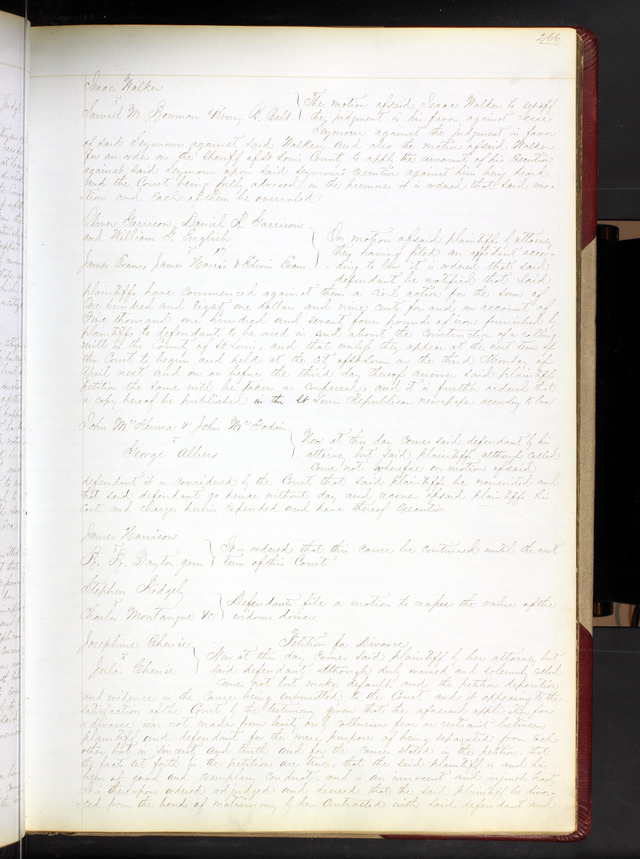 266
Isaac Walker
vs
Samuel M. Bowman & Henry B. Belt } The motion afsaid Isaac Walker to set off
the judgment in his favor against Jesse
Seymour against the judgment in favor
of said Seymour against said Walker, and also the motion afsaid Walker
for an order on the Sheriff of St Louis County to apply the amount of his execution
against said Seymour upon said Seymour's execution against him being heard
and the Court being fully advised in the premises it is ordered that said mo-
tions and each of them be overruled
Oliver Garrison, Daniel R. Garrison
and William G. English
vs
James Evans, James Harris & Edwin Evans } On motion afsaid plaintiffs by attorney
they having filed an affidavit accor-
ding to law it is ordered that said
defendants be notified that said
plaintiffs have commenced against them a civil action for the sum of
One hundred and eight one dollars and nine cents for and on account of
One thousand one hundred and seventy four pounds of iron furnished by
plaintiffs to defendants to be used in and about the construction of a
mill in the County of St Louis and that unless they appear at the next term of
this Court to begun and held at the City of St Louis on the third Monday of
April next and on or before the third day thereof answer said plaintiffs
petition the same will be taken as confessed, and it is further ordered that
a copy hereof be published in the St Louis Republican newspaper according to law
John McKenna & John McFadin
vs
George Albers } Now at this day comes said defendant by his
attorney but said plaintiffs although called
come not wherefore on motion afsaid
defendant it is considered by the Court that said plaintiffs be nonsuited and
that said defendant go hence without day and recover afsaid plaintiffs his
cost and charges herein expended and have thereof execution
James Harrison
vs
B. B. Dayton garn } It is ordered that this cause be continued until the next
term of this Court
Stephen Ridgely
vs
Charles Montangue &c } Defendants file a motion to reassess the value of the
widows dower
Josephine Cherie
vs
Jules Cherie } Petition for Divorce
Now at this day comes said plaintiff by her attorney, but
said defendant although duly warned and solemnly called
come not but make default and the petition, depositions
and evidence in the cause being submitted to the Court and it appearing to the
satisfaction of the Court by the testimony given that the aforesaid application for
a divorce was not made from levity or by collusion fear or restraint between
plaintiff and defendant for the mere purpose of being separated from each
other but in sincerity and truth and for the causes stated in the petition, that
the facts set forth in the petition are true, that the said plaintiff is and has
been of good and exemplary conduct, and is an innocent and injured party
It is thereupon ordered adjudged and decreed that the said plaintiff be divor-
ced from the bonds of matrimony by her contracted with said defendant and